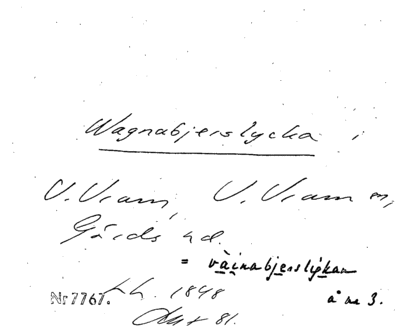 Wagnabjerslycka
V. Vram, V. Vram sn,
Gärds hd.
= väinabjerslýkan
Nr 7767. Lh. 1848 å nr 3.
Akt 81.